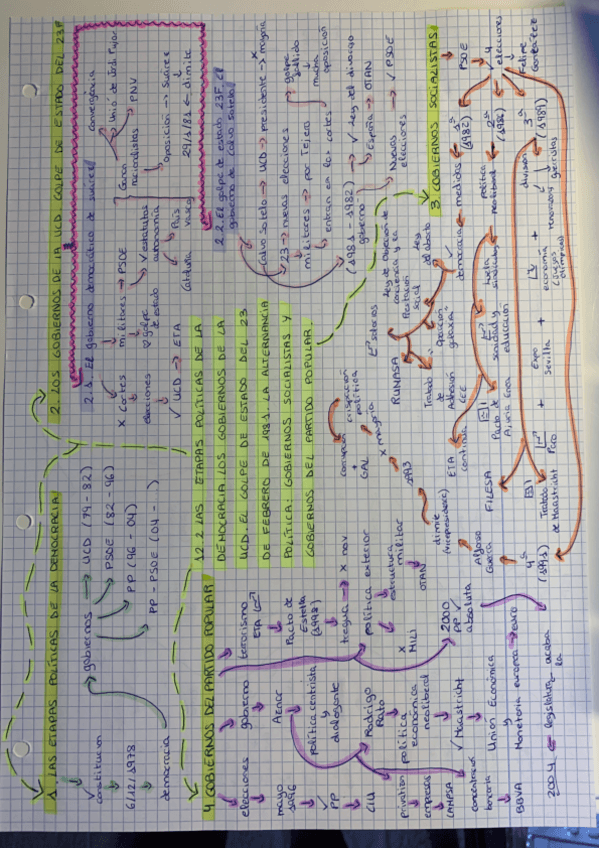 1. LAS ETAPAS POLÍTICAS DE LA DEMOCRACIA
constitución
6/12/1978
democracia
gobiernos
UCD (79-82)
PSOE (82-96)
PP (96-04)
PP-PSOE (04-  )
2. LOS GOBIERNOS DE LA UCD. GOLPE DE ESTADO DEL 23F
2.1. El gobierno democrático de Suárez
x Cortes
elecciones
✓ UCD → ETA
militares → PSOE
golpe
de
estado
✓ estatutos
autonomía
País
vasco
Cataluña
Grupos
nacionalistas
convergència
PNV
oposición → Suárez
29/1/81 ← dimite
2.2. El golpe de estado 23F. El
gobierno de Calvo Sotelo
Calvo Sotelo → UCD → presidente → x mayoría
23 → nuevas elecciones
militares → por Tejero
entran en las cortes
golpe
fallido
mucha
oposición
(1981-1982) → ✓ ley del divorcio
gobierno
España → OTAN
Nuevas
elecciones → ✓ PSOE
12.2 LAS ETAPAS POLÍTICAS DE LA
DEMOCRACIA. LOS GOBIERNOS DE LA
UCD. EL GOLPE DE ESTADO DEL 23
DE FEBRERO DE 1981. LA ALTERNANCIA
POLÍTICA: GOBIERNOS SOCIALISTAS Y
GOBIERNOS DEL PARTIDO POPULAR.
3. GOBIERNOS SOCIALISTAS
PSOE
✓ 4
elecciones
Felipe
González
1ª
(1982)
medidas
democracia
ley
del aborto
RUMASA
Tratado
de
Adhesión
CEE
2ª
(1986)
política
neoliberal
lucha
sindicatos
sanidad y
educación
Pacto de
Ajuria Enea
ETA
continúa
3ª
(1989)
división
y
guerristas
+
economía
+
Expo
Sevilla
+
Paro
Tratado
de Maastricht
4ª
(1993)
FILESA
Alfonso
Guerra
dimite
(vicepresidente)
1993
x mayoría
corrupción
+
GAL
crispación
política
4. GOBIERNOS DEL PARTIDO POPULAR
elecciones
mayo
1996
✓
PP
CIU
gobierno
Aznar
política centrista
y
dialogante
Rodrigo
Rato
política
económica
neoliberal
✓ Maastricht
Unión Económica
y
Monetaria europea → euro
privatizan
empresas
concentración
bancaria
BBVA
terrorismo
ETA
Pacto de
Estella
(1998)
tregua → x nov
política exterior
estructura
militar
OTAN
x
MILI
2000
PP ✓
absoluta
2004 ← legislatura acaba
la